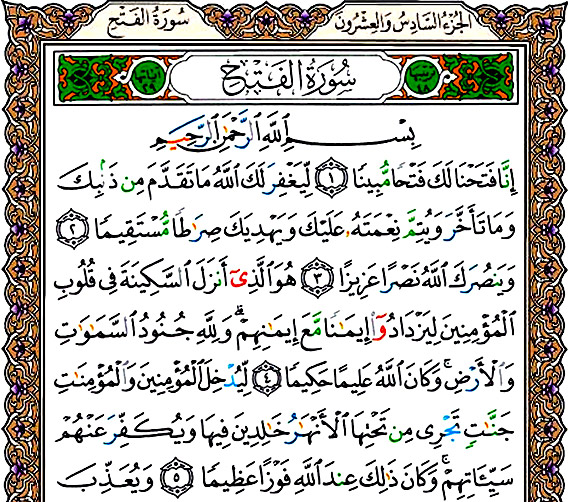 الجزء السادس والعشرون سورة الفتح
سُورَةُ الفَتْحِ
بِسْمِ ٱللَّهِ ٱلرَّحْمَٰنِ ٱلرَّحِيمِ
إِنَّا فَتَحْنَا لَكَ فَتْحًا مُّبِينًا ١ لِّيَغْفِرَ لَكَ ٱللَّهُ مَا تَقَدَّمَ مِن ذَنۢبِكَ
وَمَا تَأَخَّرَ وَيُتِمَّ نِعْمَتَهُۥ عَلَيْكَ وَيَهْدِيَكَ صِرَٰطًا مُّسْتَقِيمًا ٢
وَيَنصُرَكَ ٱللَّهُ نَصْرًا عَزِيزًا ٣ هُوَ ٱلَّذِىٓ أَنزَلَ ٱلسَّكِينَةَ فِى قُلُوبِ
ٱلْمُؤْمِنِينَ لِيَزْدَادُوٓا۟ إِيمَٰنًا مَّعَ إِيمَٰنِهِمْ ۗ وَلِلَّهِ جُنُودُ ٱلسَّمَٰوَٰتِ
وَٱلْأَرْضِ ۚ وَكَانَ ٱللَّهُ عَلِيمًا حَكِيمًا ٤ لِّيُدْخِلَ ٱلْمُؤْمِنِينَ وَٱلْمُؤْمِنَٰتِ
جَنَّٰتٍ تَجْرِى مِن تَحْتِهَا ٱلْأَنْهَٰرُ خَٰلِدِينَ فِيهَا وَيُكَفِّرَ عَنْهُمْ
سَيِّـَٔاتِهِمْ ۚ وَكَانَ ذَٰلِكَ عِندَ ٱللَّهِ فَوْزًا عَظِيمًا ٥ وَيُعَذِّبَ